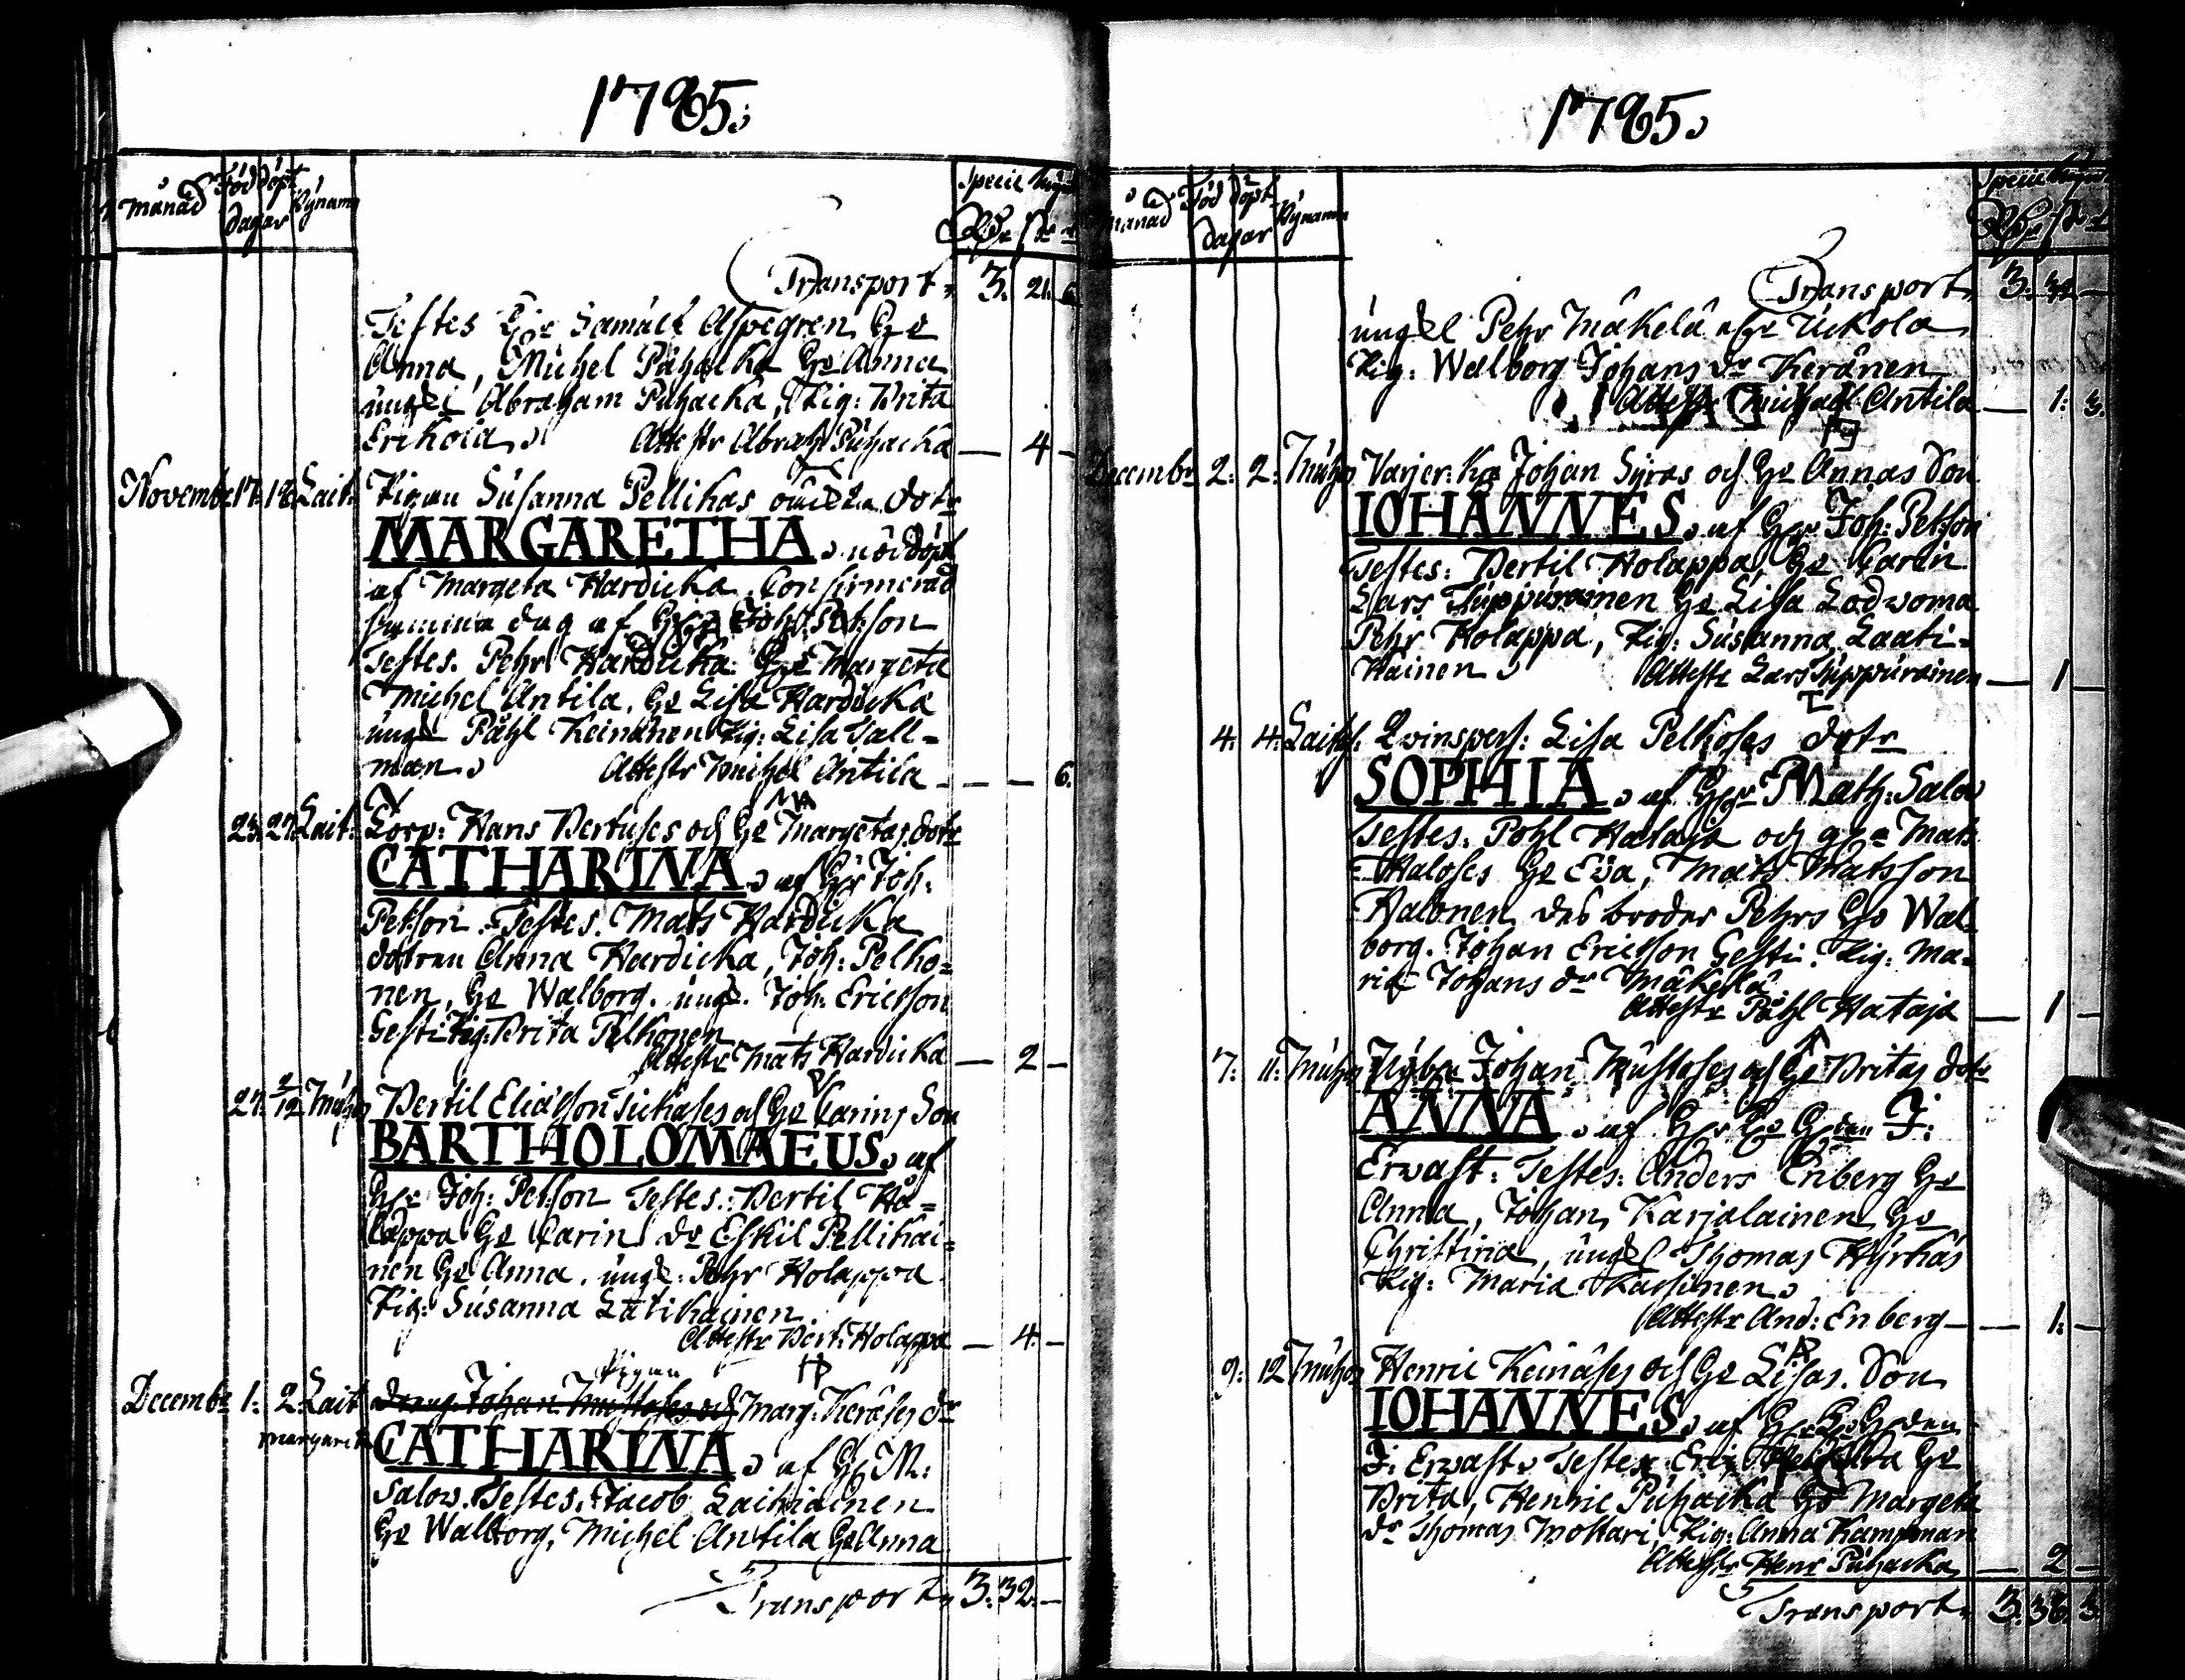 1785.
Månad Född döpt Bÿnamn
dagar
Speciet
Rdr sk r
Transport 3. 21. 6.
Testes Samuel Aspegren He
Anna, Michel Puhacka He Anna
ungkl Abraham Puhacka, Pig: Brita
Erikola. Attestr Abrah Puhacka — 4 —
Novemb 17. 18. Lait. Pigan Susanna Pellikas oäckta dotr
MARGARETHA. nöddöpt
af Margeta Hardicka. Confirmerad
samma dag af Joh: Petson
Testes. Pehr Hardicka He Margeta
Michel Antila. He Lisa Hardicka
ungl Påhl Keinänen Pig: Lisa Tall=
man. Attestr Michel Antila — — 6.
23. 27. Lait: Corp: Hans Bertuses och He Margetas dotr
CATHARINA. af Hr Joh:
Petson. Testes. Mats Hardicka
dotren Anna Hardicka, Joh: Pelko=
nen, He Walborg. ungl. Joh: Ericsson
Gesti Pig: Brita Pelkonen
Attestr Mats Hardicka — 2 —
27. 2/12 Muhos Bertil Eliasson och He Carins Son
BARTHOLOMAEUS. af
Hr Joh: Petson Testes: Bertil Ho=
lappa He Carin dr Eskil Pellikai=
nen He Anna. ungl: Pehr Holappa
Pig: Susanna Latikainen.
Attestr Bert: Holappa — 4. —
Pigan
Decemb 1. 2. Lait dreng Johan Mustoses och Marg: Keräses dr
Margaret
CATHARINA. af H M:
Salov. Testes. Jacob Laitiainen
He Walborg, Michel Antila He Anna
Transport 3. 32. —
1785.
Månad Född döpt Bÿnamn
dagar
Speciet
Rdr sk r
Transport 3. 32 —
ungkl Pehr Mäkelä Uckola
Pig: Walborg Johans dr Keränen
Attestr Michael Antila — 1. 3.
Decembr 2. 2. Muhos Johan Syras och He Annas Son
IOHANNES. af Hr Joh: Petson
Testes: Bertil Holappa, He Carin
Lars Tuppurainen He Lisa Lodwoma
Pehr Holappa, Pig: Susanna Laati=
kainen. Attestr Lars Tuppurainen — 1 —
4. 4. Lait. Qwinspers: Lisa Pelkoses dotr
SOPHIA. af Hr Math: Salov
Testes. Pohl Hataja och Mats
Haloses He Eva, Mats Matsson
Halonen des broder Pehrs He Wal=
borg. Johan Ericsson Gesti. Pig: Ma=
ria Johans dr Mäkelä.
Attestr Påhl Hataja — 1 —
7. 11. Muhos Nÿb: Johan Mustoses och He Britas dotr
ANNA. af Hr J:
Erwast: Testes: Anders Enberg He
Anna, Johan Karjalainen He
Christina, ungl Thomas Hÿrkäs
Pig: Maria Karhinen.
Attestr And: Enberg — 1. —
9. 12 Muhos Henric Keinäses och He Lisas. Son
IOHANNES. af Hr
J: Erwast. Testes: Eric He
Brita, Henric Puhacka He Margeta
dr Thomas Mottari Pig: Anna Kampman
Attestr Henr Puhacka — 2 —
Transport 3. 38. 3